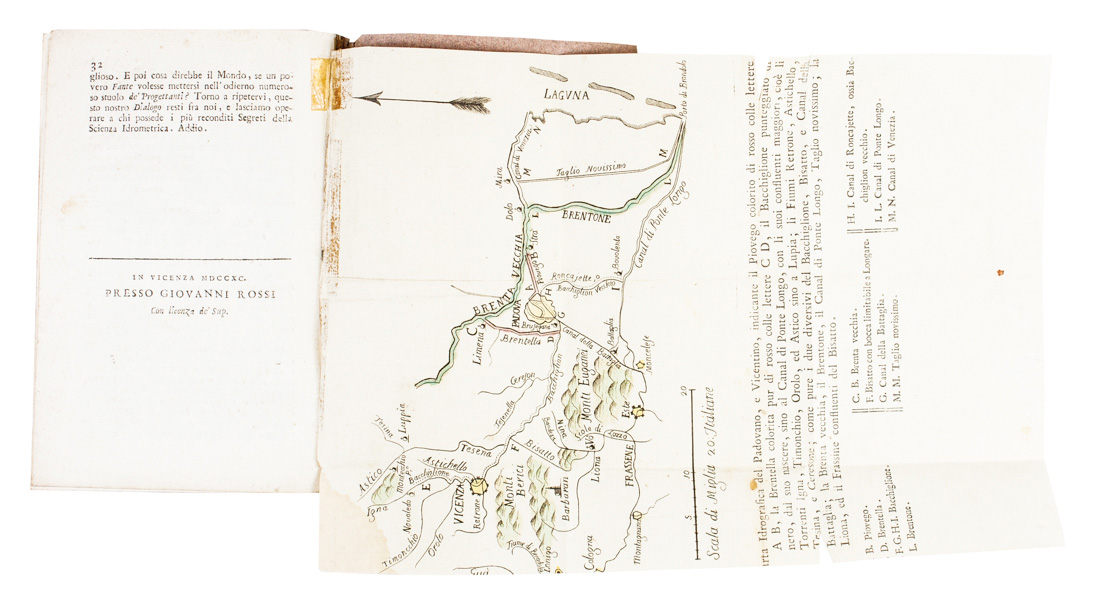 32
glioso. E poi cosa direbbe il Mondo, se un po-
vero Fante volesse mettersi nell'odierno numero-
so stuolo de' Progettanti? Torno a ripetervi, que-
sto nostro Dialogo resti fra noi, e lasciamo ope-
rare a chi possede i più reconditi Segreti della
Scienza Idrometrica. Addio.
IN VICENZA MDCCXC.
PRESSO GIOVANNI ROSSI
Con licenza de' Sup.
LAGVNA
Porto di Brondolo
N
Canal di Venezia
M
Mira
Taglio Novissimo
M
L
Dolo
I
BRENTONE
Canal di Ponte Longo
BRENTA VECCHIA
Strà
B
Piovego
A
Bovolenta
Roncajette
Bacchiglion Vecchio
I
H
PADOVA
G
C
Limena
Brusegana
Brentella
D
Canal della Battaglia
Battaglia
Moncelese
Monti Euganei
Bacchiglion
Cereson
Tesenella
Este
Luppia
Tesina
Tesena
F
Bisatto
Scolo di Lozzo
Liona
FRASSENE
Astico
Igna
Astichello
Bacchiglione
E
Novoledo
Timonchio
Orolo
VICENZA
Retrone
Monti Berici
Barbaran
Montagnana
Cologna
Scala di Miglia 20 Italiane
5
10
20
arta Idrografica del Padovano, e Vicentino, indicante il Piovego colorito di rosso colle lettere
A B, la Brentella colorita pur di rosso colle lettere C D, il Bacchiglione punteggiato di
nero, dal suo nascere, sino al Canal di Ponte Longo, con li suoi confluenti maggiori, cioè li
Torrenti Igna, Timonchio, Orolo, ed Astico sino a Lupia; li Fiumi Retrone, Astichello,
Tesina, e Ceresone; come pure i due diversivi del Bacchiglione, Bisatto, e Canal della
Battaglia; la Brenta vecchia, il Brentone, il Canal di Ponte Longo, Taglio novissimo; la
Liona, ed il Frassine confluenti del Bisatto.
B. Piovego.
D. Brentella.
F. G. H. I. Bacchiglione.
L. Brentone.
C. B. Brenta vecchia.
F. Bisatto con bocca limitabile a Longare.
G. Canal della Battaglia.
M. M. Taglio novissimo.
H. I. Canal di Roncajette, ossia Bac-
chiglion vecchio.
I. L. Canal di Ponte Longo.
M. N. Canal di Venezia.